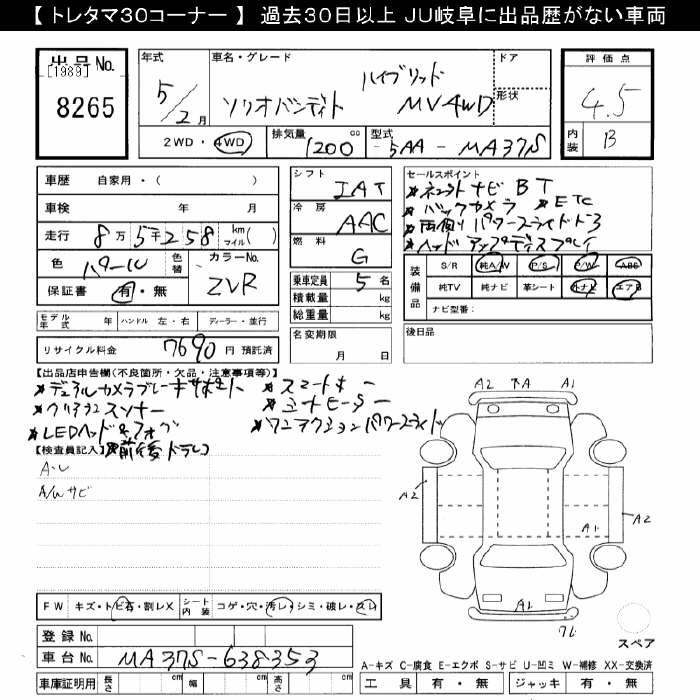 【 トレタマ30コーナー 】 過去30日以上 JU岐阜に出品歴がない車両
出品 No.
[1989]
8265
年式
5/2月
車名・グレード
ハイブリッド
ソリオバンディト MV 4WD
ドア
形状
評価点
4.5
内装 B
2WD・4WD
排気量 1200 cc
型式 5AA - MA37S
車歴 自家用・( )
車検 年 月
走行 8万5千258 km マイル( )
色 パール 色替
カラーNo. ZVR
保証書 有・無
シフト IAT
冷房 AAC
燃料 G
乗車定員 5名
積載量 kg
総重量 kg
セールスポイント
BT
*バックカメラ *ETC
*ヘッドアップディスプレイ
装備品
S/R 純A/W P/S P/W ABS
純TV 純ナビ 革シート 外ナビ エアB
ナビ型番:
モデル年式 年 ハンドル 左・右 ディーラー・並行
リサイクル料金 7690円 預託済
名変期限
月 日
後日品
【出品店申告欄(不良箇所・欠品・注意事項等)】
*デュアルカメラブレーキサポート *スマートキー
*クリアランスソナー *シートヒーター
*LEDヘッド&フォグ *ワンアクションパワースライド
【検査員記入】*前後ドラレコ
A・U
A/Wサビ
A2 A A1
A2
A1 A2
A1
スペア
FW キズ・トビ石・割レX シート内装 コゲ・穴・汚レ・シミ・破レ・スレ
登録 No.
車台 No. MA37S-638353
車庫証明用 長さ cm 幅 cm 高さ cm
A-キズ C-腐食 E-エクボ S-サビ U-凹ミ W-補修 XX-交換済
工具 有・無 ジャッキ 有・無